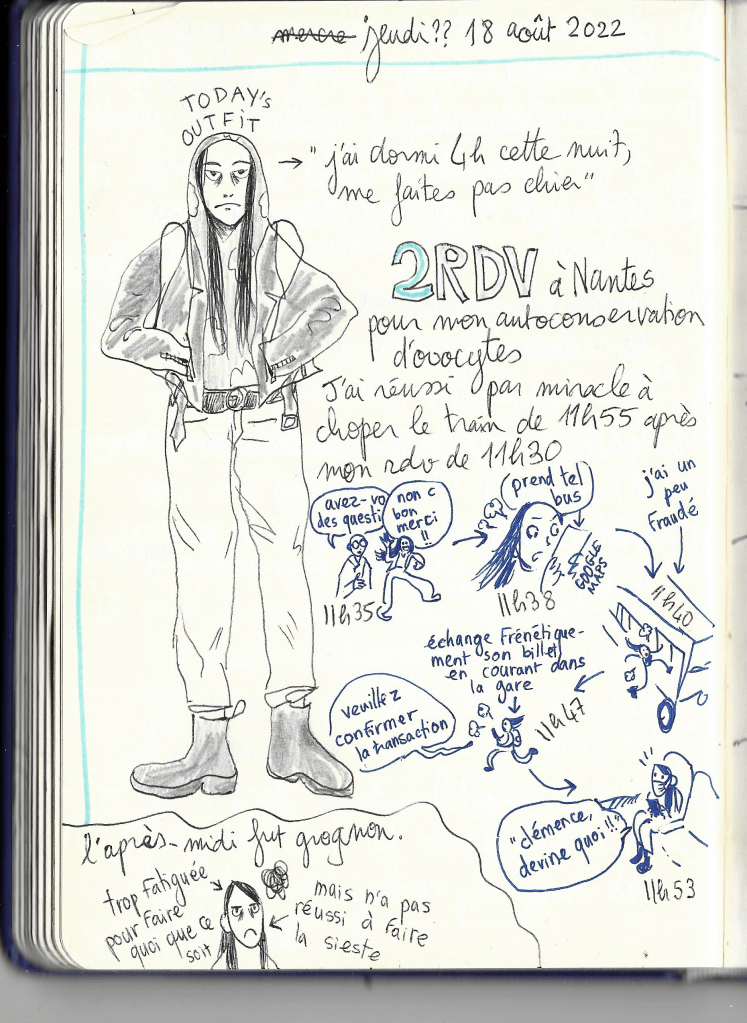 mercre jeudi?? 18 août 2022
TODAY'S
OUTFIT
"j'ai dormi 4h cette nuit,
me faites pas chier"
2RDV à Nantes
pour mon autoconservation
d'ovocytes
J'ai réussi par miracle à
choper le train de 11h55 après
mon rdv de 11h30
avez-vo
des questi
non c
bon
merci
!!
11h35
prend tel
bus
GOOGLE
MAPS
11h38
j'ai un
peu
fraudé
11h40
échange frénétique-
ment son billet
en courant dans
la gare
veuillez
confirmer
la transaction
11h47
"clémence,
devine quoi!!"
11h53
l'après-midi fut grognon.
trop fatiguée
pour faire
quoi que ce
soit
mais n'a pas
réussi à faire
la sieste